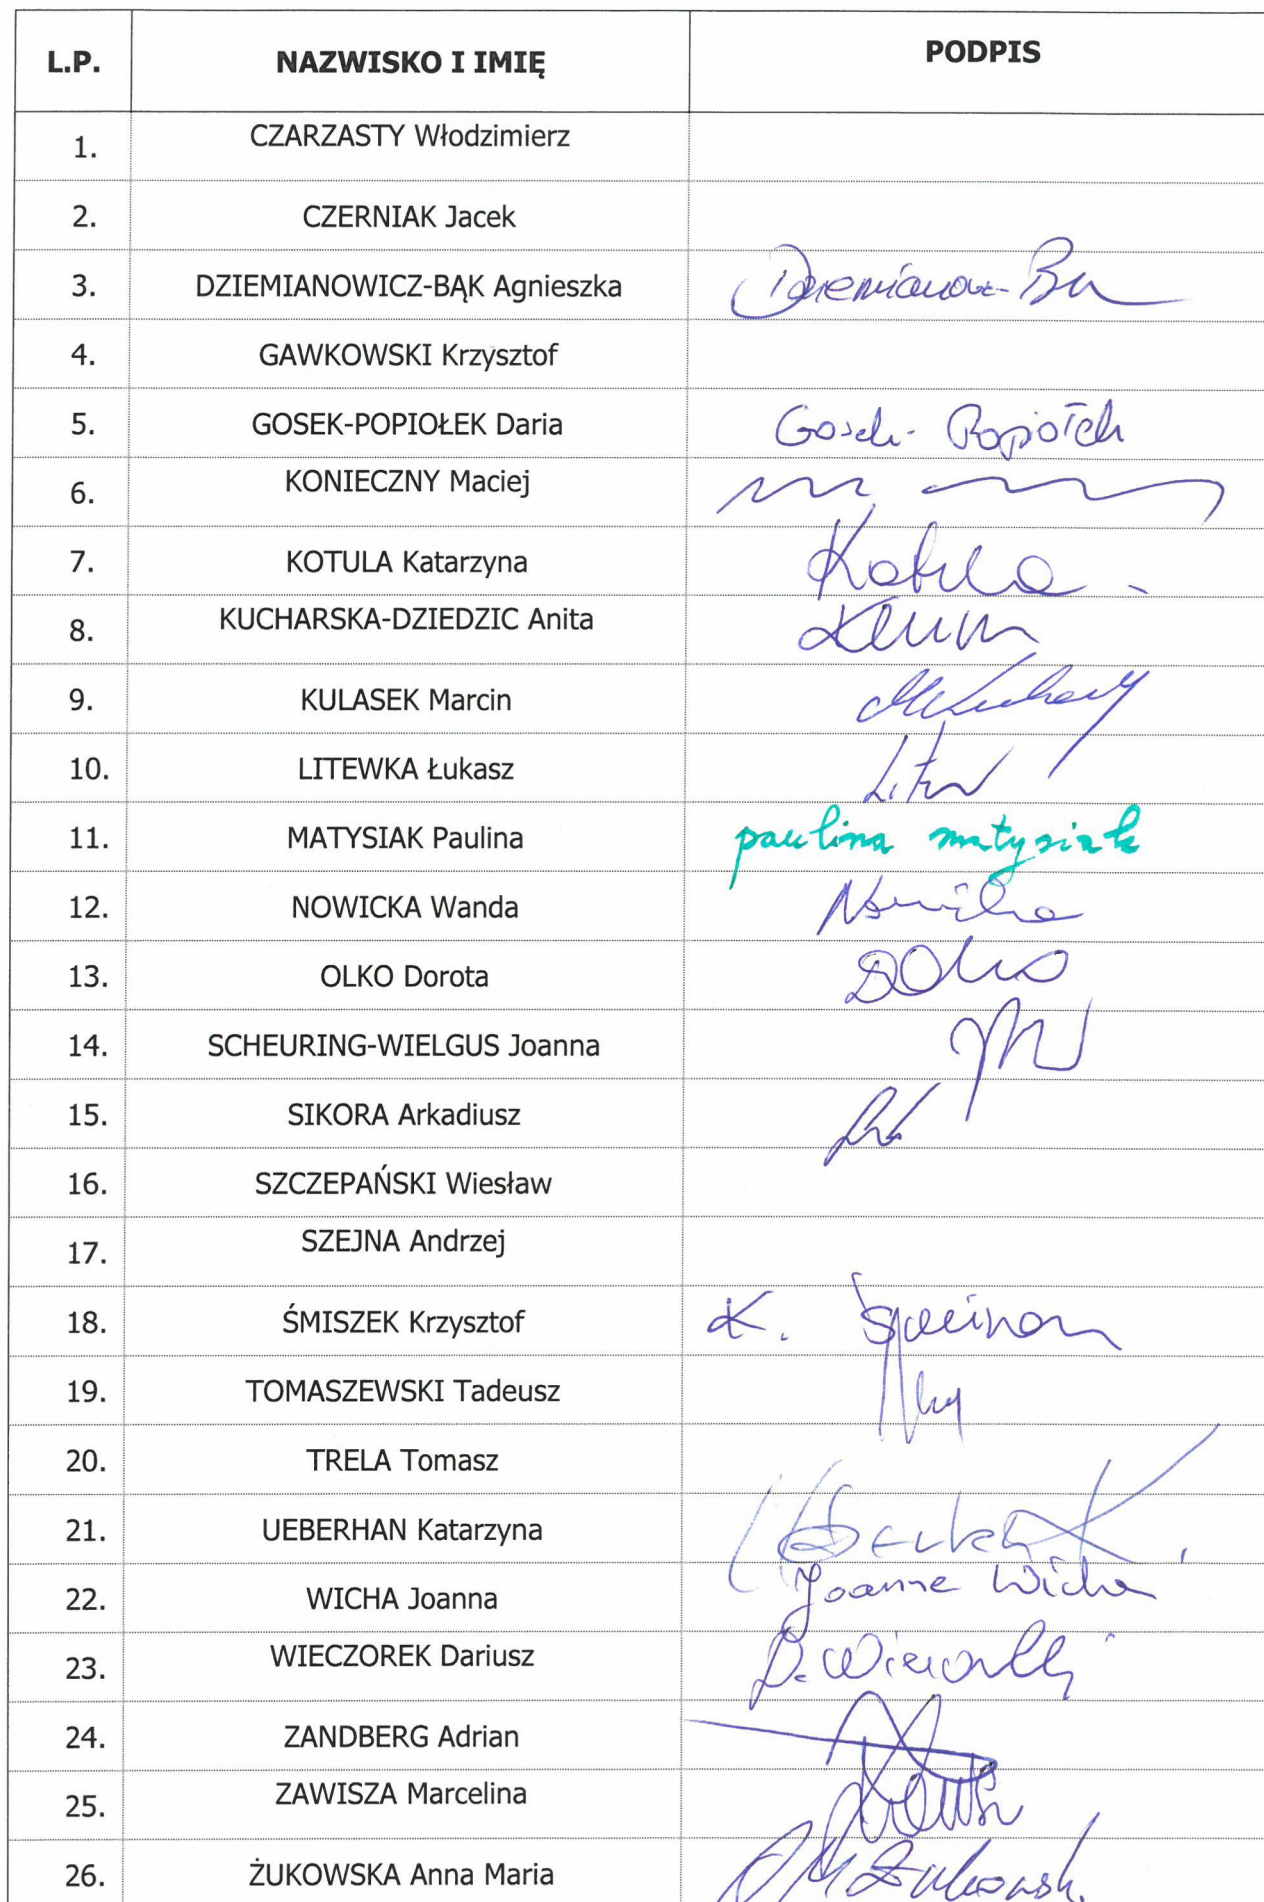 L.P. NAZWISKO I IMIĘ PODPIS
1. CZARZASTY Włodzimierz
2. CZERNIAK Jacek
3. DZIEMIANOWICZ-BĄK Agnieszka
4. GAWKOWSKI Krzysztof
5. GOSEK-POPIOŁEK Daria Gosek-Popiołek
6. KONIECZNY Maciej
7. KOTULA Katarzyna Kotula
8. KUCHARSKA-DZIEDZIC Anita
9. KULASEK Marcin
10. LITEWKA Łukasz
11. MATYSIAK Paulina paulina matysiak
12. NOWICKA Wanda Nowicka
13. OLKO Dorota DOlko
14. SCHEURING-WIELGUS Joanna
15. SIKORA Arkadiusz
16. SZCZEPAŃSKI Wiesław
17. SZEJNA Andrzej
18. ŚMISZEK Krzysztof K.
19. TOMASZEWSKI Tadeusz
20. TRELA Tomasz
21. UEBERHAN Katarzyna
22. WICHA Joanna Joanna Wicha
23. WIECZOREK Dariusz D. Wieczorek
24. ZANDBERG Adrian
25. ZAWISZA Marcelina
26. ŻUKOWSKA Anna Maria AMŻukowsk.